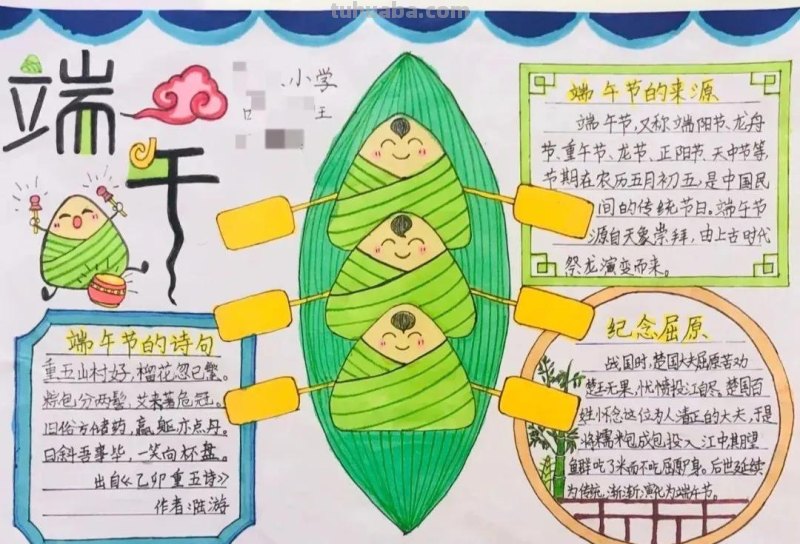 tuhuaba.com
端午
小学
王
端午节的来源
端午节,又称端阳节、龙舟
节、重午节、龙节、正阳节、天中节等,
节期在农历五月初五,是中国民
间的传统节日。端午节
源自天象崇拜,由上古时代
祭龙演变而来。
端午节的诗句
重五山村好,榴花忽已繁。
粽包分两髻,艾束著危冠。
旧俗方储药,羸躯亦点丹。
日斜吾事毕,一笑向杯盘。
出自《乙卯重五诗》
作者:陆游
纪念屈原
战国时,楚国大夫屈原苦劝
楚王无果,忧愤投江自尽。楚国百
姓不忍这位为人清正的大夫,于是
将糯米包成包,投入江中期望
鱼群吃了米而不吃屈原身。后世延续
为传统,渐渐演化为端午节。